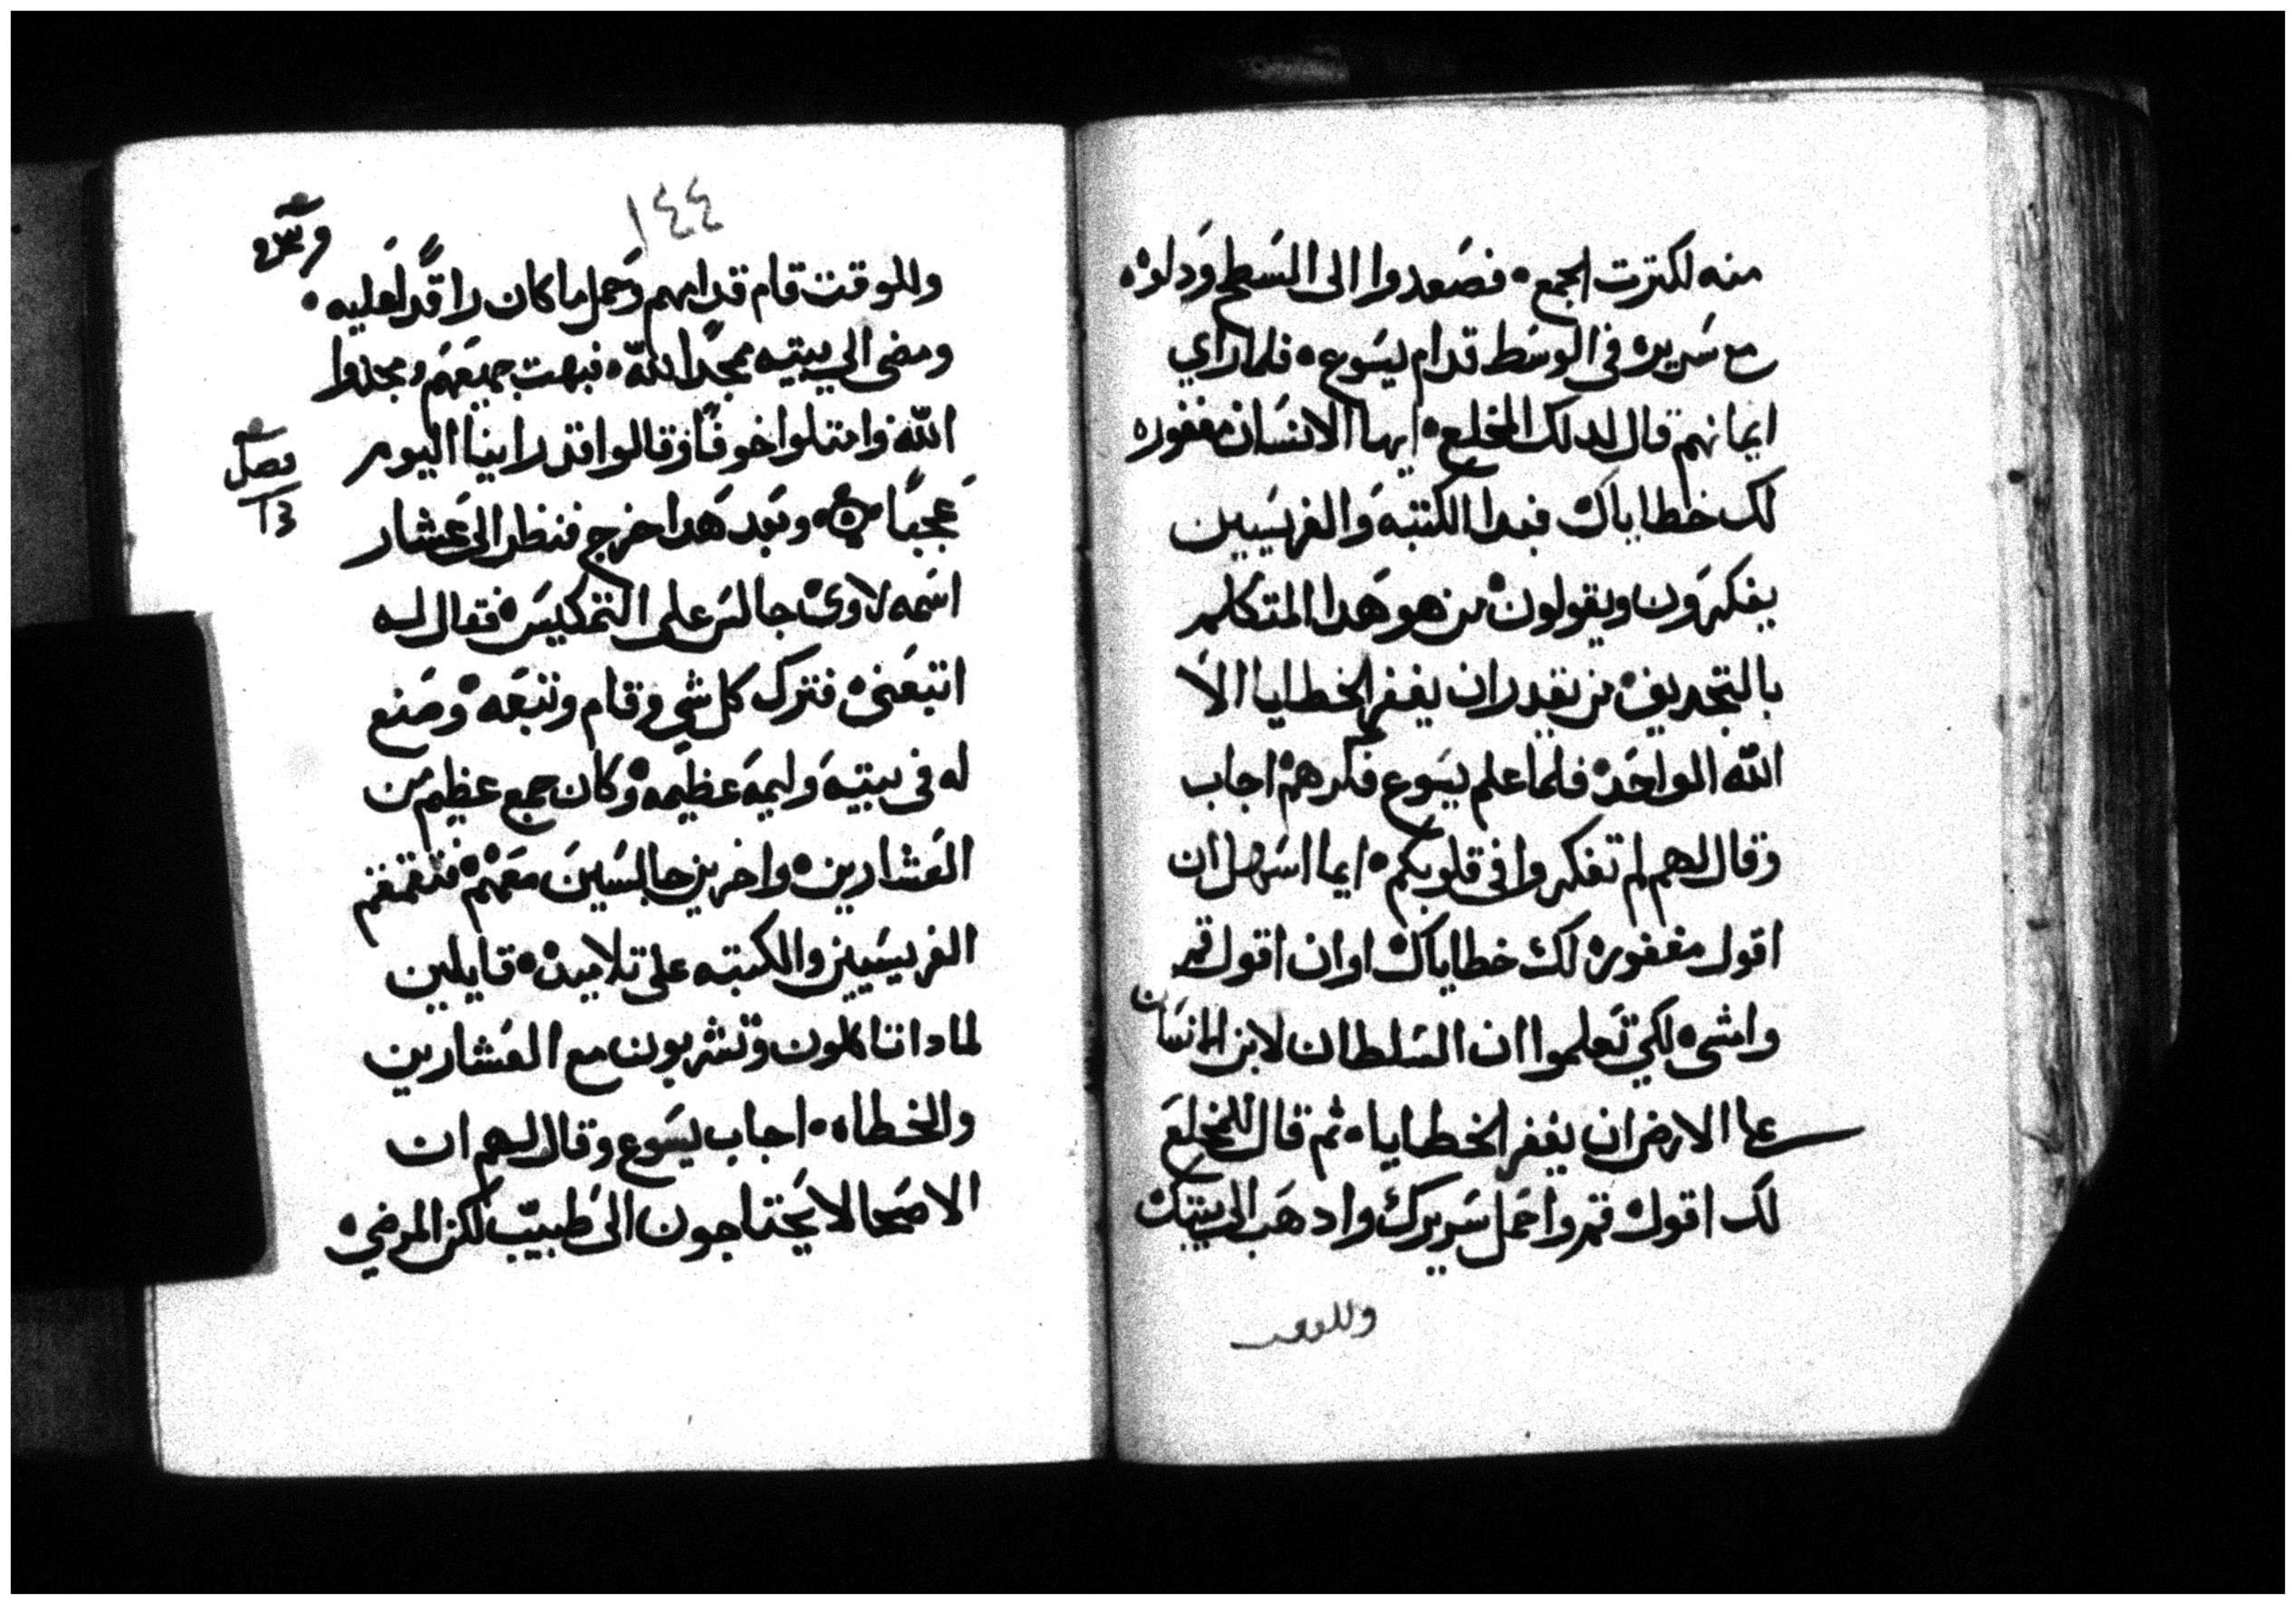 منه لكترت الجمع ۰ فصَعدوا الى السَطح وَدلوه
مع سَريره فى الوسَط قدام يسَوع ۰ فلما راي
ايمانهم قال لدلك المخلع ۰ ايها الانسَان مغفوره
لك خطاياك فبدا الكتبه وَالفريسَيين
يفكرَون ويقولون من هو هَدا المتكلم
بالتجديف من يقدر ان يغفر الخطايا الا
الله الواحَد فلما علم يسَوع فكرهم اجاب
وقال لهم لم تفكروا فى قلوبكم ۰ ايما اسَهل ان
اقول مغفوره لك خطاياك او ان اقول قم
وامشى لكي تعلموا ان السَلطان لابن الانسَان
على الارض ان يغفر الخطايا ۰ ثم قال للمخلعَ
لك اقول قم واحَمل سَريرك وادهَب الى بيتك
وللوقت
١٤٤
وللوقت قام قدامهم وَحَمل ما كان راقدًا عَليه ۰
ومضى الي بيته ممجدًا الله ۰ فبهت جميعَهم ومجدوا
الله وامتلوا خوفًا وقالوا قد راينا اليوم
عَجبًا ۰ وبَعد هَدا خرج فنظر الىَ عَشار
فصل
١٣
اسَمه لاوى جالسَ على التمكيسَ فقال له
اتبعَنى فترك كل شي وقام وتبعَه وصَنع
له فى بيته وَليمَه عَظيمه وَكان جمع عظيم من
العَشارين ۰ واخرين جالسَينَ معَهم فتقمقم
الفريسَيين والكتبه على تلاميده ۰ قايلين
لمادا تاكلون وتشربون مع العَشارين
والخطاه ۰ اجاب يسَوع وقال لهم ان
الاصَحا لا يَحتاجون الىَ طَبيب لكن المرضي